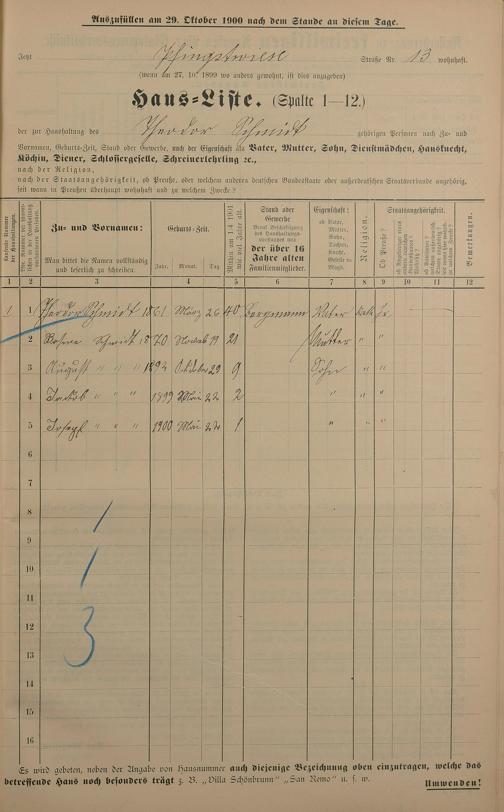 Auszufüllen am 29. Oktober 1900 nach dem Stande an diesem Tage.
Jetzt Pfingstwiese Straße Nr. 13 wohnhaft.
(wenn am 27. 10. 1899 wo anders gewohnt, ist dies anzugeben)
Haus-Liste. (Spalte 1—12.)
der zur Haushaltung des Theodor Schmidt gehörigen Personen nach Zu- und
Vornamen, Geburts-Zeit, Stand oder Gewerbe, nach der Eigenschaft als Vater, Mutter, Sohn, Dienstmädchen, Hausknecht,
Köchin, Diener, Schlossergeselle, Schreinerlehrling ec.,
nach der Religion,
nach der Staatsangehörigkeit, ob Preuße, oder welchem anderen deutschen Bundesstaate oder außerdeutschen Staatsverbande angehörig,
seit wann in Preußen überhaupt wohnhaft und zu welchem Zwecke?
Zu- und Vornamen:
Man bittet die Namen vollständig und leserlich zu schreiben.
Geburts-Zeit.
Jahr. Monat. Tag
Mithin am 1/4 1901 wie viel Jahre alt.
Stand oder Gewerbe
der über 16 Jahre alten Familienmitglieder.
Eigenschaft:
ob Vater, Mutter, Sohn, Tochter, Knecht, Geselle or Magd.
Religion.
Staatsangehörigkeit.
Ob Preuße?
Bemerkungen.
1 2 3 4 5 6 7 8 9 10 11 12
1 1 Theodor Schmidt 1861 März 26 40 Bergmann Vater kath
2 Schmidt 1870 19 Mutter " "
3 August " " " 1892 Oktober 29 9 Sohn " "
4 Jakob " " " 1899 Mai 22 2 " " "
5 Joseph " " " 1900 Mai 22 1 " " "
6
7
8
9
10
11
12
13
14
15
16
1
1
3
Es wird gebeten, neben der Angabe von Hausnummer auch diejenige Bezeichnung oben einzutragen, welche das
betreffende Haus noch besonders trägt z. B. „Villa Schönbrunn" „San Remo" u. s. w. Umwenden!